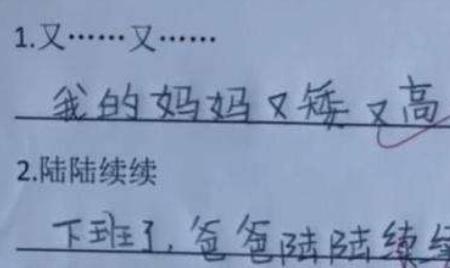 1.又……又……
我的妈妈又矮又高
2.陆陆续续
下班了,爸爸陆陆续续